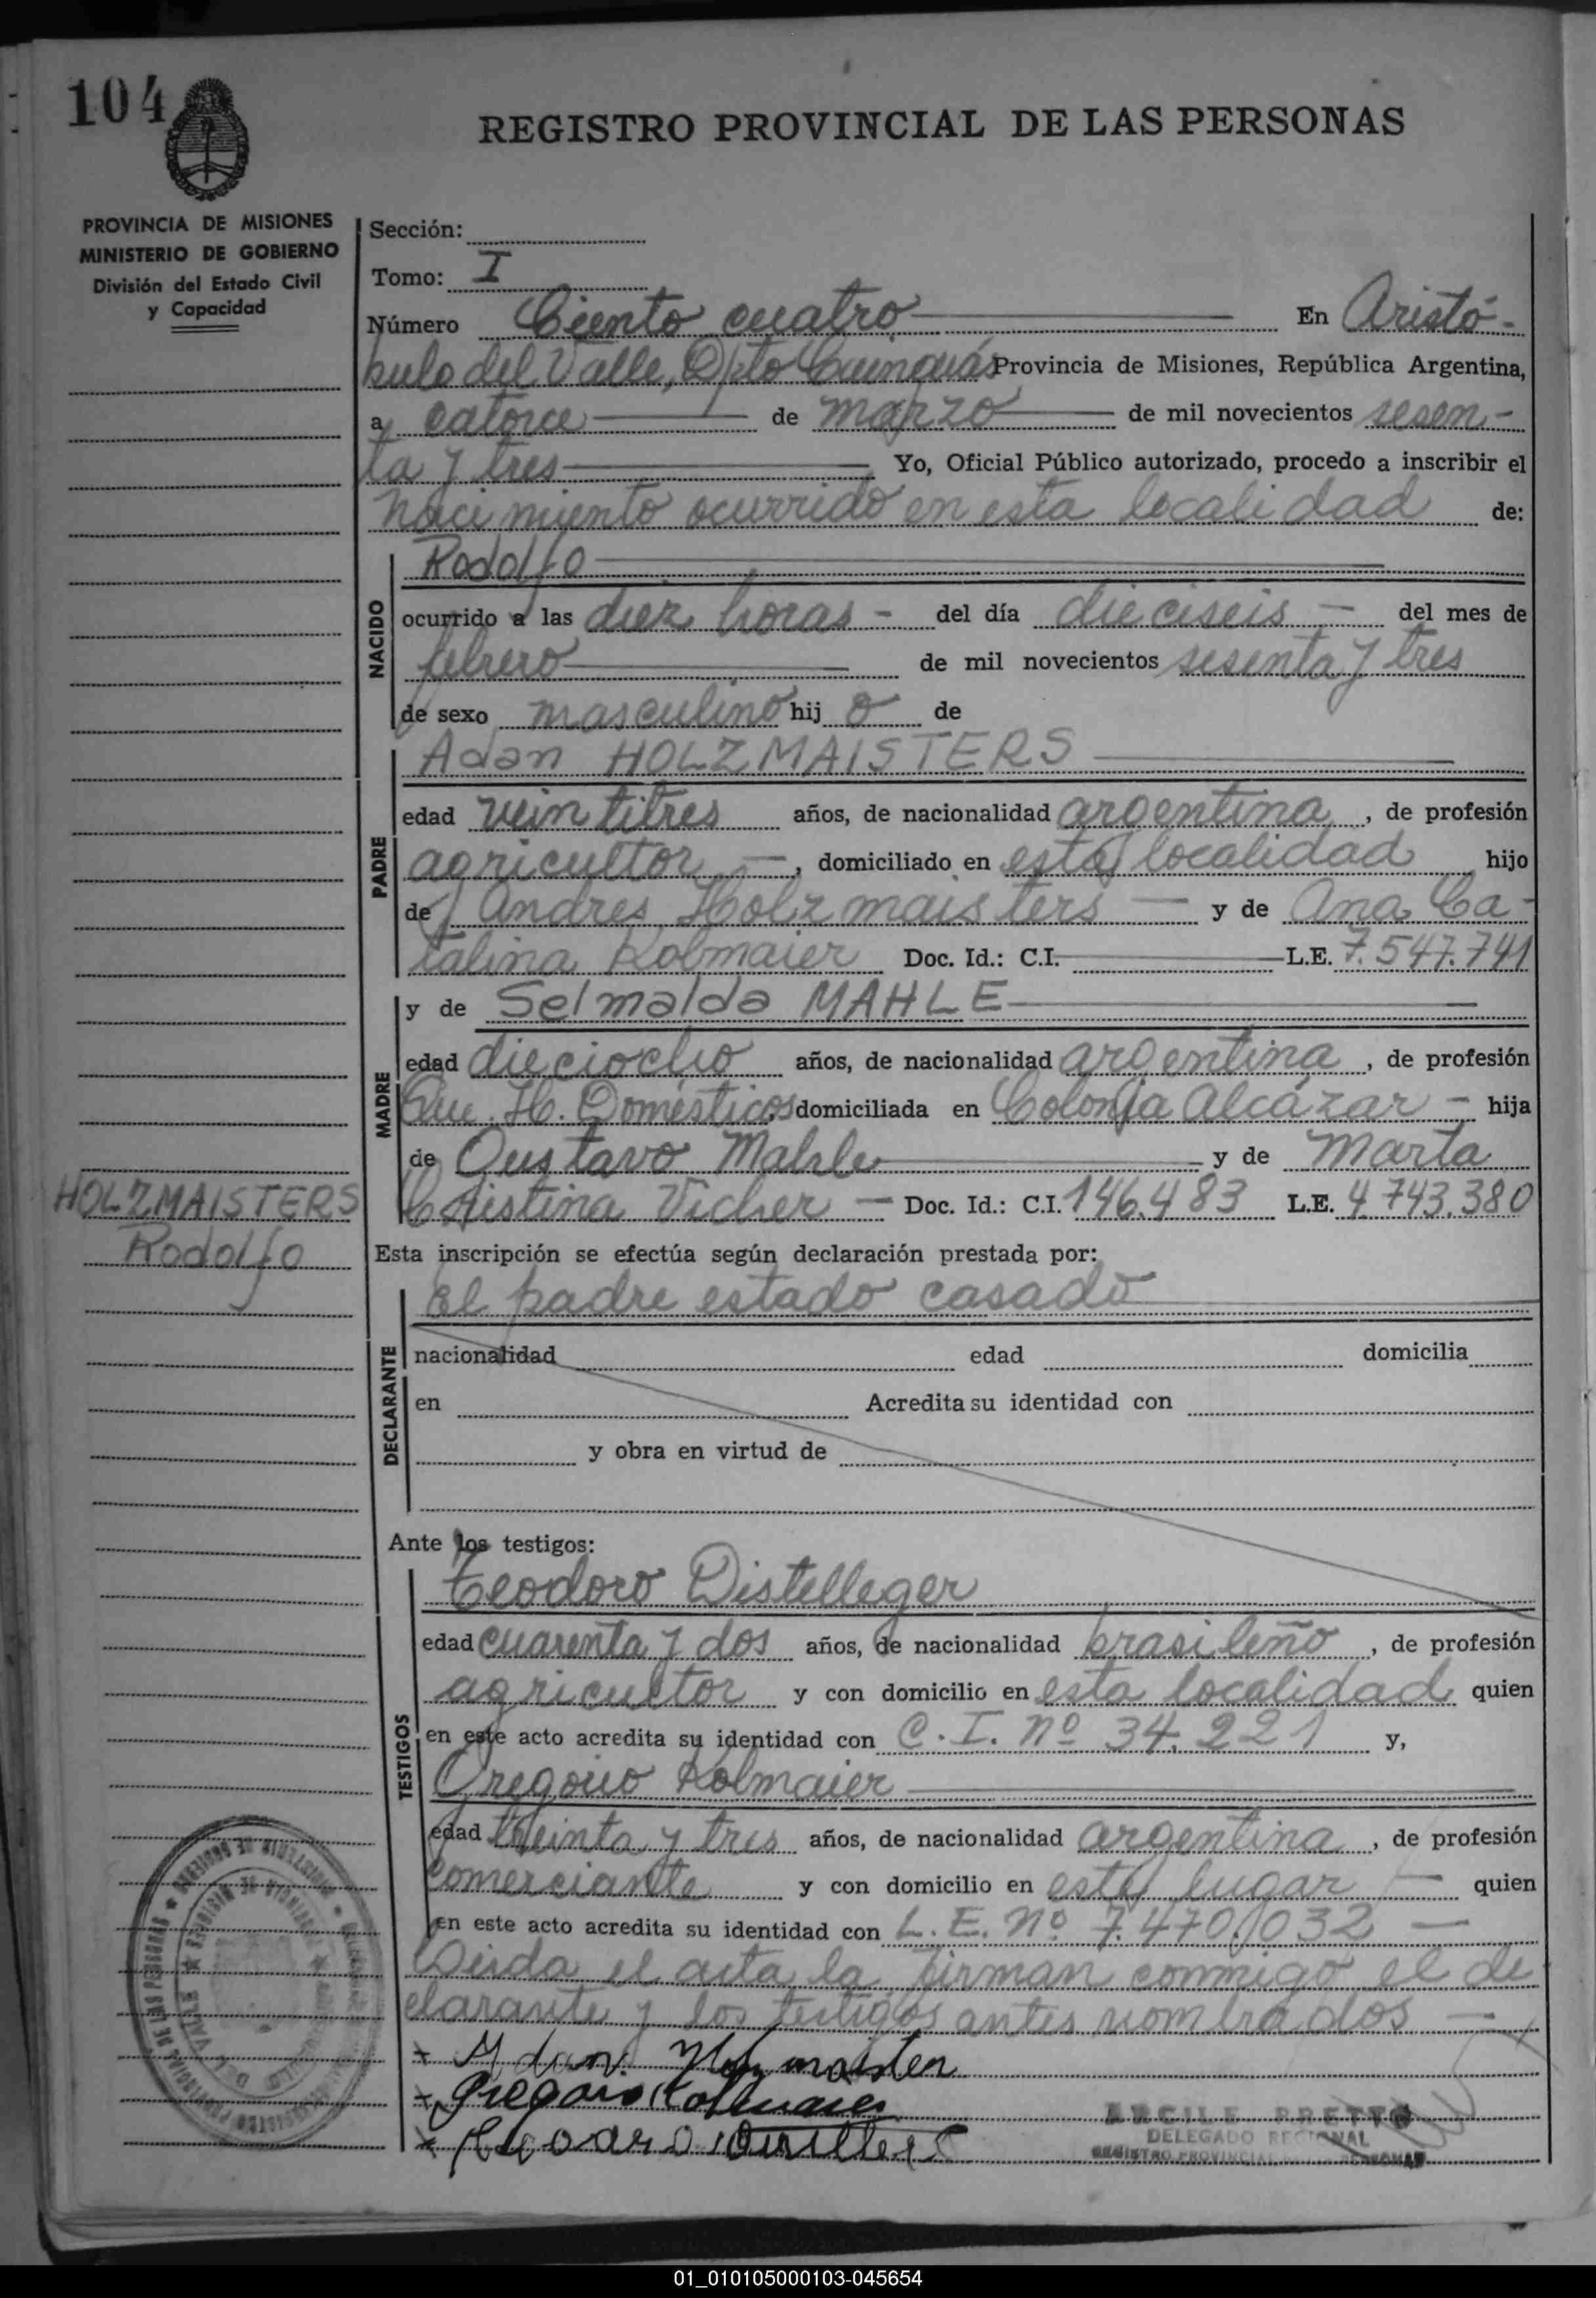 104
REGISTRO PROVINCIAL DE LAS PERSONAS
PROVINCIA DE MISIONES
MINISTERIO DE GOBIERNO
División del Estado Civil
y Capacidad
Sección:
Tomo: I
Número Ciento cuatro En Aristó-
bulo del Valle, Dpto Cainguás Provincia de Misiones, República Argentina,
a catorce de marzo de mil novecientos sesen-
ta y tres Yo, Oficial Público autorizado, procedo a inscribir el
nacimiento ocurrido en esta localidad de:
NACIDO
Rodolfo
ocurrido a las diez horas - del día dieciseis - del mes de
febrero de mil novecientos sesenta y tres
de sexo masculino hij o de
PADRE
Adan HOLZMAISTERS
edad veintitres años, de nacionalidad argentina, de profesión
agricultor -, domiciliado en esta localidad hijo
de Andres Holzmaisters - y de Ana Ca-
talina Kolmaier Doc. Id.: C.I. L.E. 7.547.741
MADRE
y de Selmalda MAHLE
edad dieciocho años, de nacionalidad argentina, de profesión
Que. H. Domésticos domiciliada en Colonia Alcázar - hija
de Gustavo Mahle y de Marta
Cristina Vicher - Doc. Id.: C.I. 146.483 L.E. 4.743.380
HOLZMAISTERS
Rodolfo
Esta inscripción se efectúa según declaración prestada por:
DECLARANTE
El padre estado casado
nacionalidad edad domicilia
en Acredita su identidad con
y obra en virtud de
Ante los testigos:
TESTIGOS
Teodoro Distelleger
edad cuarenta y dos años, de nacionalidad brasileño, de profesión
agricultor y con domicilio en esta localidad quien
en este acto acredita su identidad con C.I. Nº 34.221 y,
Gregorio Kolmaier
edad treinta y tres años, de nacionalidad argentina, de profesión
comerciante y con domicilio en este lugar - quien
en este acto acredita su identidad con L.E. Nº 7.470.032 -
Leida el acta la firman conmigo el de
clarante y los testigos antes nombrados -
+ Adan
+ Gregorio Kolmaier
+
ARCILE PRETTO
DELEGADO REGIONAL
REGISTRO PROVINCIAL DE LAS PERSONAS
01_010105000103-045654